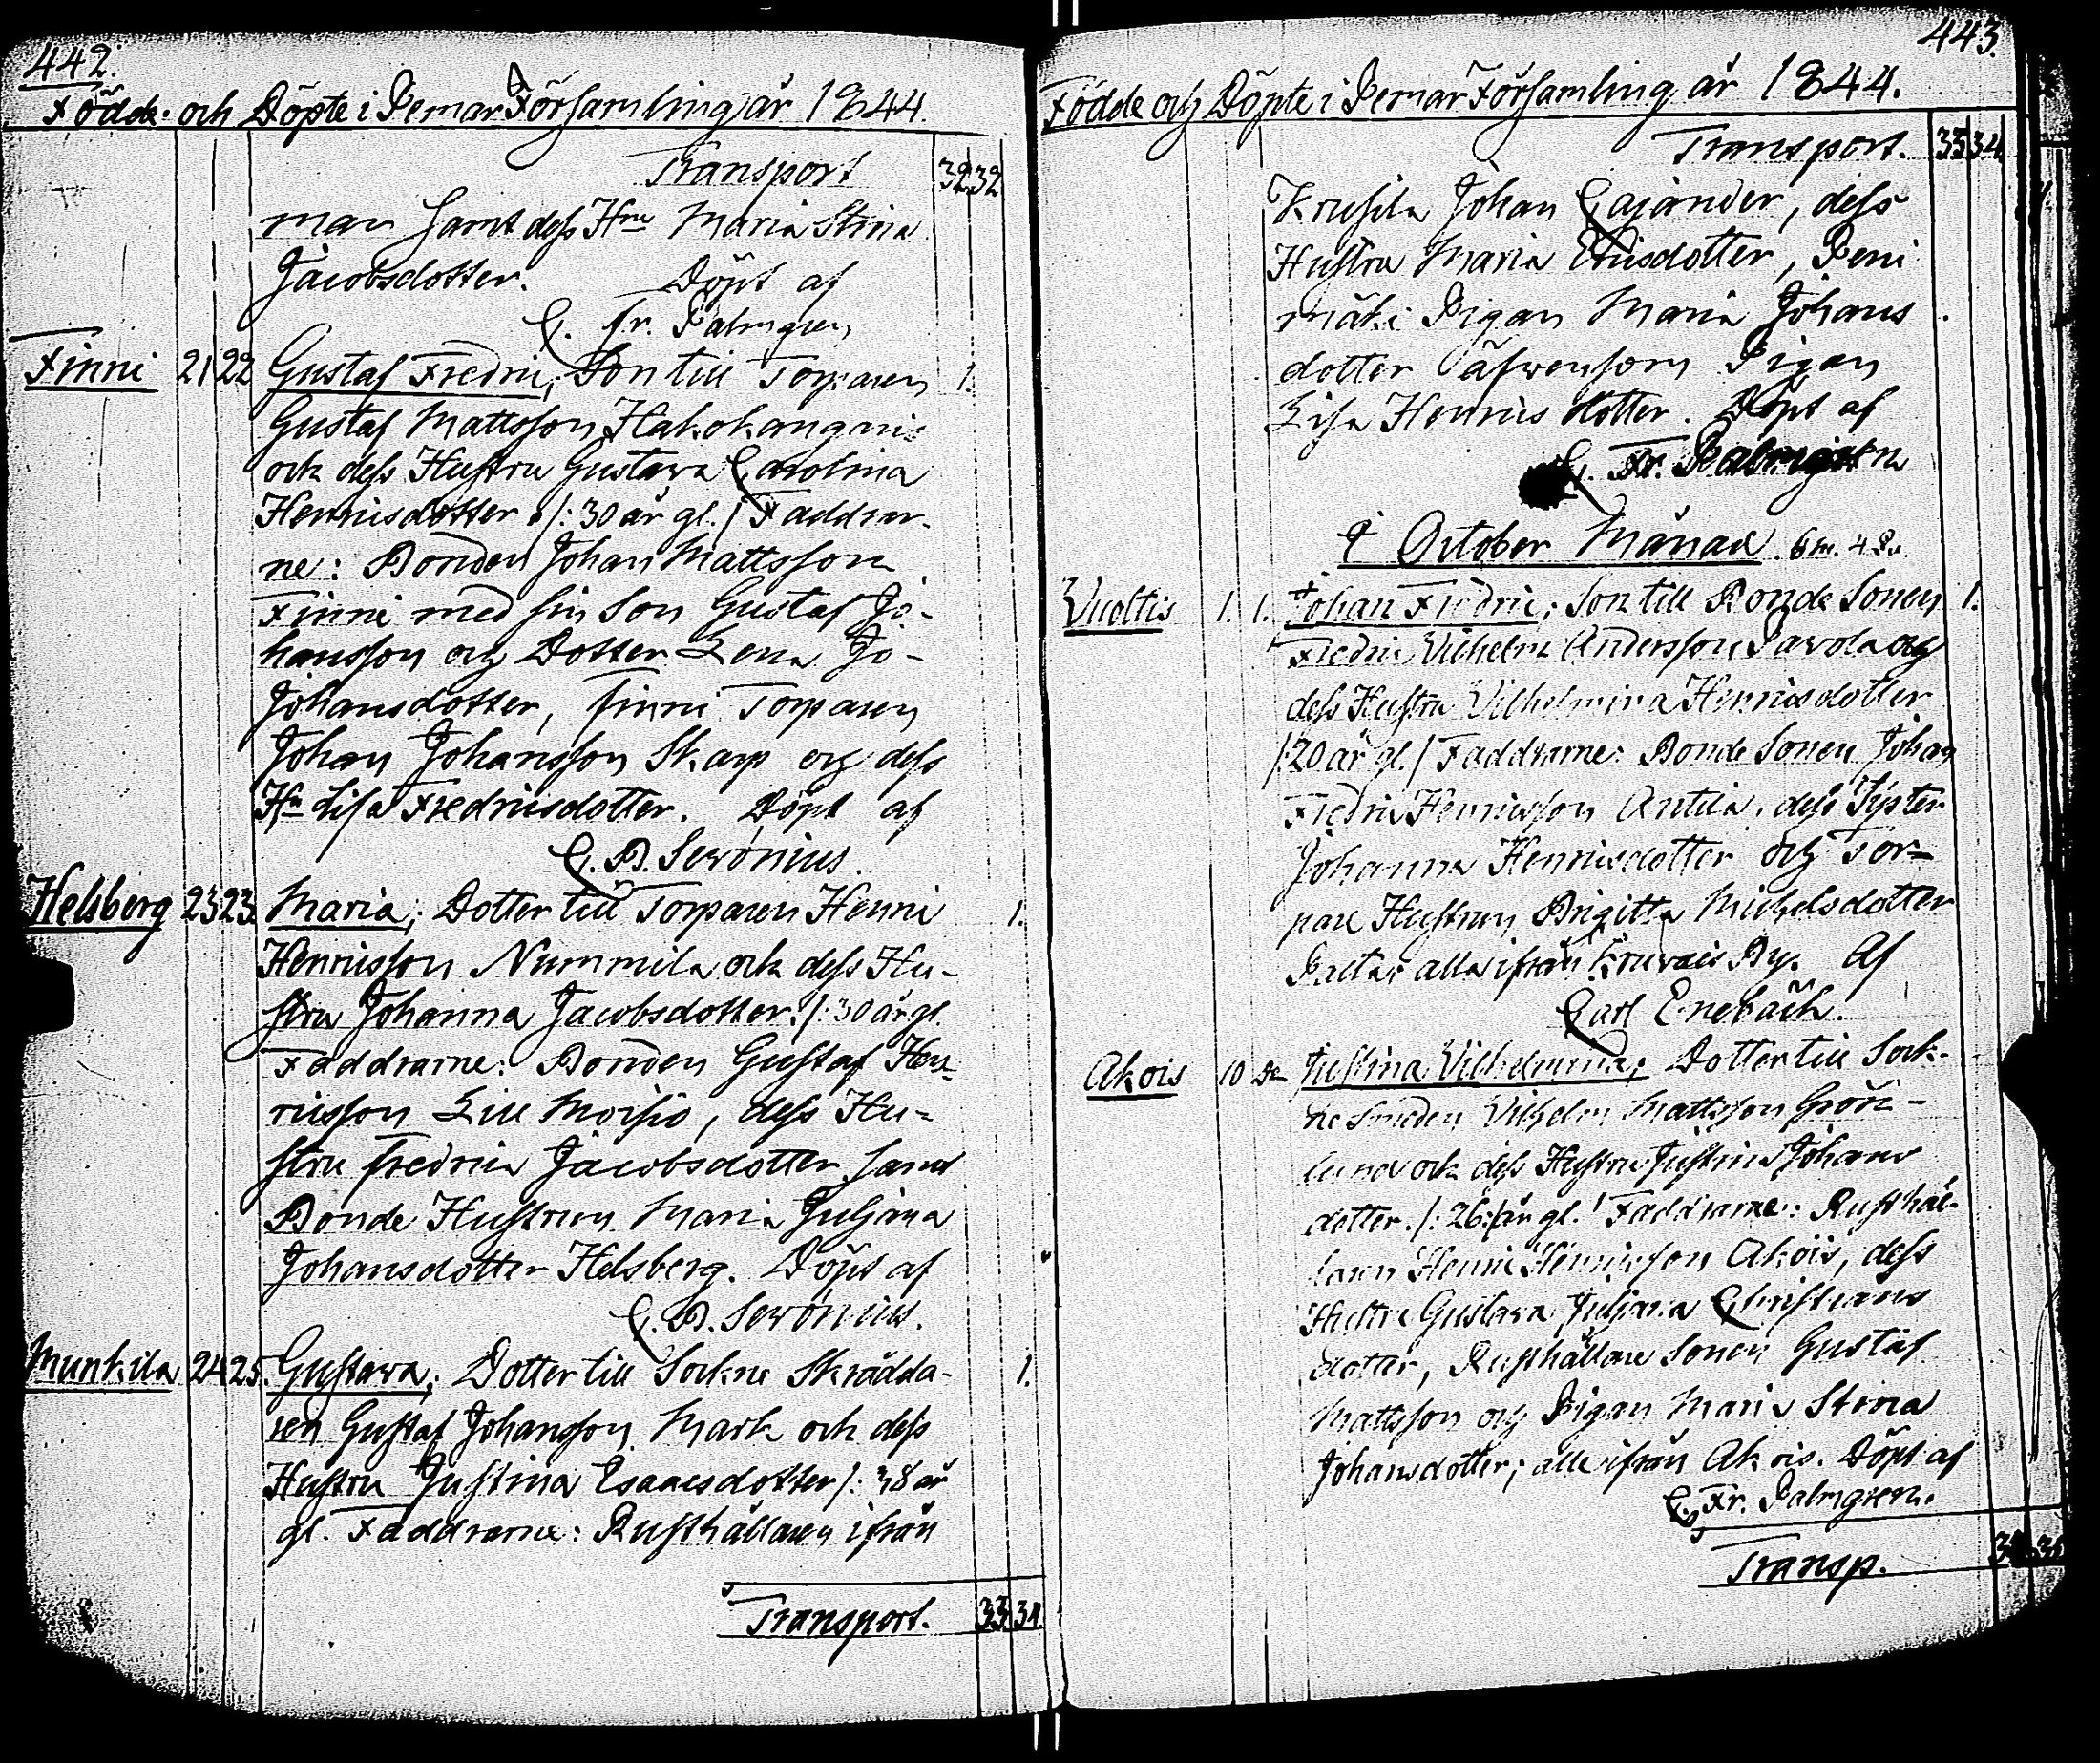 442.
Födde och Döpte i Pemar Församling år 1844.
Transport 32 32
man samt dess Hru Maria Stina
Jacobsdotter. Döpt af
C. Fr. Palmgren
Finni 21 22 Gustaf Fredric; Son till Torparen 1.
Gustaf Mattsson Hakokangaris
och dess Hustru Gustava Carolina
Henricsdotter /: 30 år gl. / Faddrar-
ne: Bonden Johan Mattsson
Finni med sin Son Gustaf Jo-
hansson och Dotter Lena Jo-
Johansdotter, Finni Torparen
Johan Johansson Skarp och dess
Hu Lisa Fredricsdotter. Döpt af
C. B. Serónius.
Helsberg 23 23. Maria; Dotter till Torparen Henric 1.
Henricsson Nummila och dess Hu-
stru Johanna Jacobsdotter. /: 30 år gl.
Faddrarne: Bonden Gustaf Hen-
ricsson Lill Moisio, dess Hu-
stru Fredrica Jacobsdotter samt
Bonde Hustrun Maria Juljana
Johansdotter Helsberg. Döpt af
C. B. Serónius.
Munkila 24 25. Gustava; Dotter till Sockne Skrädda- 1.
ren Gustaf Johansson Mark och dess
Hustru Justina Isaacsdotter /: 38 år
gl. Faddrarne: Rusthållaren ifrån
Transport. 33 34
443.
Födde och Döpte i Pemar Församling år 1844.
Transport. 33 34
Krusila Johan Cajander, dess
Hustru Maria Ericsdotter, Peni
mäki Pigan Maria Johans
dotter äfvensom Pigan
Lisa Henrics dotter. Döpt af
C. Fr. Palmgren
I October Månad. 6 m. 4 Qv.
Vuoltis 1. 1. Johan Fredric; Son till Bonde Sonen 1.
Fredric Vilhelm Andersson Pavola och
dess Hustru Vilhelmina Henricsdotter
/: 20 år gl. / Faddrarne: Bonde Sonen Johan
Fredric Henricsson Antila, dess Syster
Johanna Henricsdotter och Tor-
pare Hustrun Brigitta Michelsdotter
alla ifrån By. Af
Carl Enebäck.
Akois 10 Justina Vilhelmina; Dotter till Sock-
ne Smeden Vilhelm Mattsson Grön-
lund och dess Hustru Justina Johans
dotter. /: 26 år gl. / Faddrarne: Rusthål-
laren Henric Henricsson Akois, dess
Hustru Gustava Juljana Christians
dotter, Rusthållare Sonen Gustaf
Mattsson och Pigan Maria Stina
Johansdotter; alle ifrån Akois. Döpt af
C. Fr. Palmgren.
Transp.